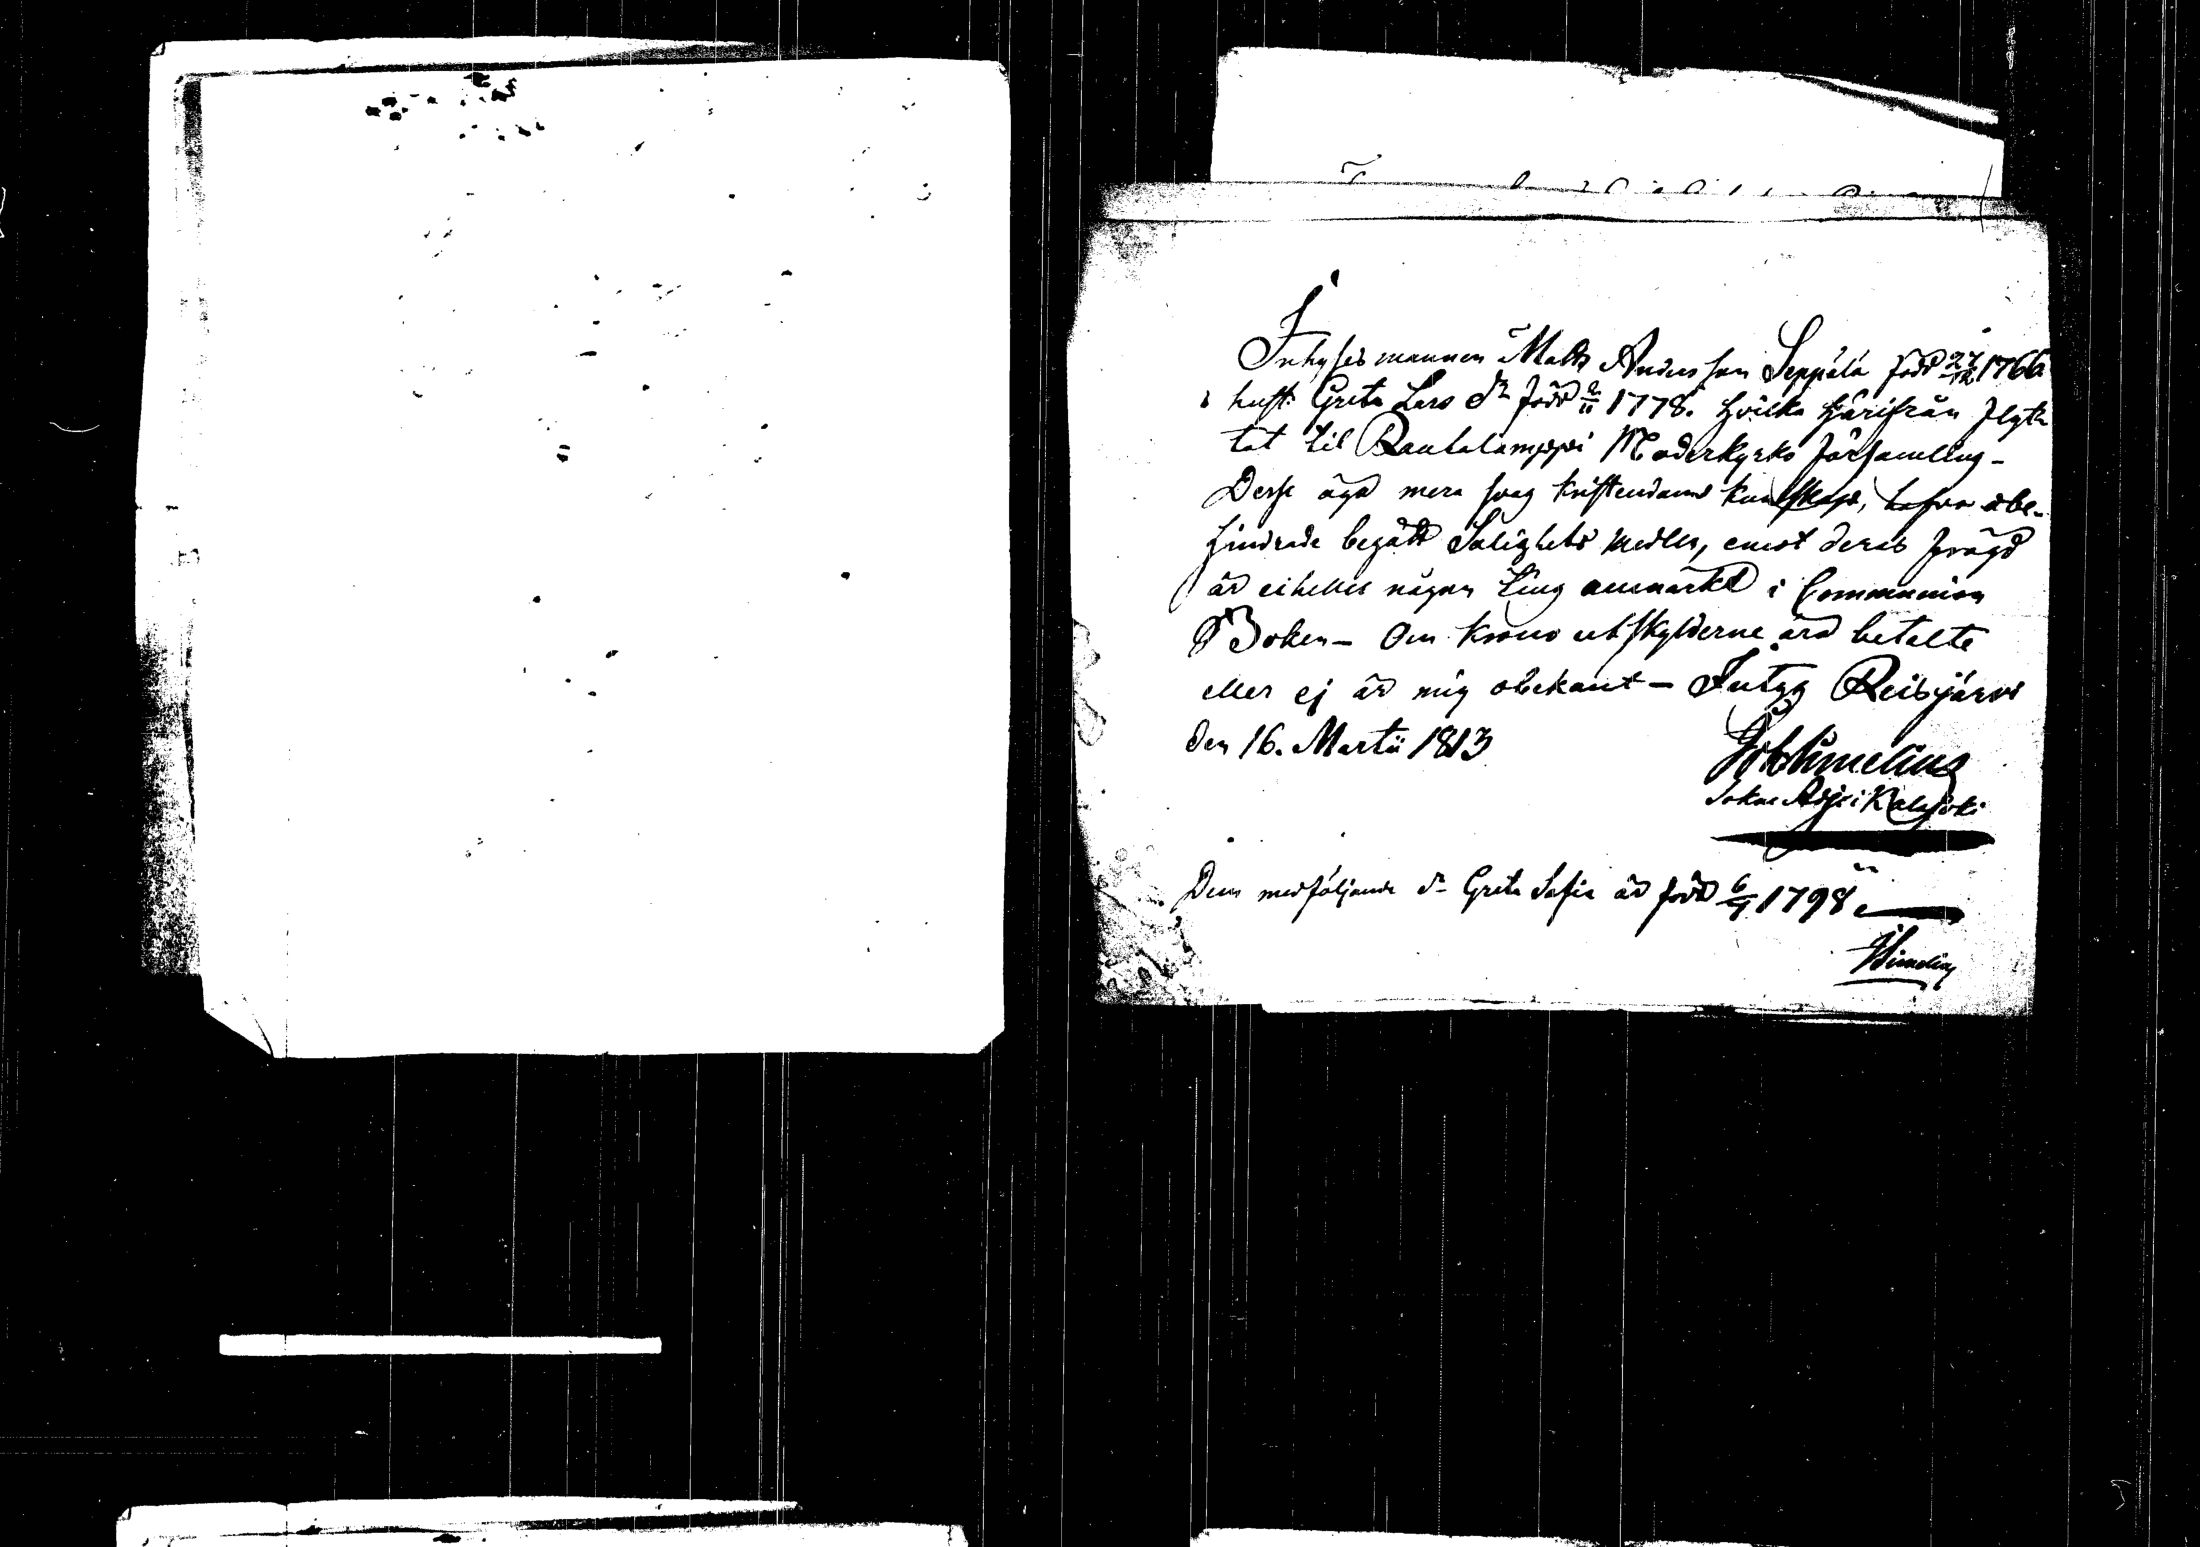 Inhyses mannen Matts Andersson Seppälä född 27/12 1766
hust: Greta Lars dr född 2/11 1778. hvilka härifrån flytt
tat til Rautalamppi Moderkyrko församling -
Desse äga mera svag kristendoms kunskap, hafva obe-
hindrade begådt Salighets medlen, emot deras frägd
är ei heller någon ting anmärkt i Communion
Boken - Om Krono utskylderne äro betalte
eller ej är mig obekant - Intyg Reisjärvi
den 16. Martii 1813
Joh Simelius
Sokne Adj: i Kalajoki
Dem medföljande dr Greta Sofia är född 6/7 1798
JSimelius